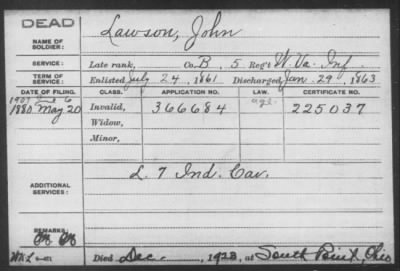 DEAD
NAME OF SOLDIER: Lawson, John
SERVICE: Late rank, Co. B, 5 Reg't W. Va. Inf.
TERM OF SERVICE: Enlisted July 24, 1861 Discharged Jan. 29, 1863
DATE OF FILING. CLASS. APPLICATION NO. LAW. CERTIFICATE NO.
1907 6
1880 May 20 Invalid, 366684 age. 225037
Widow,
Minor,
ADDITIONAL SERVICES: L. 7 Ind. Cav.
REMARKS:
Died Dec. , 1923, at South Point, Ohio